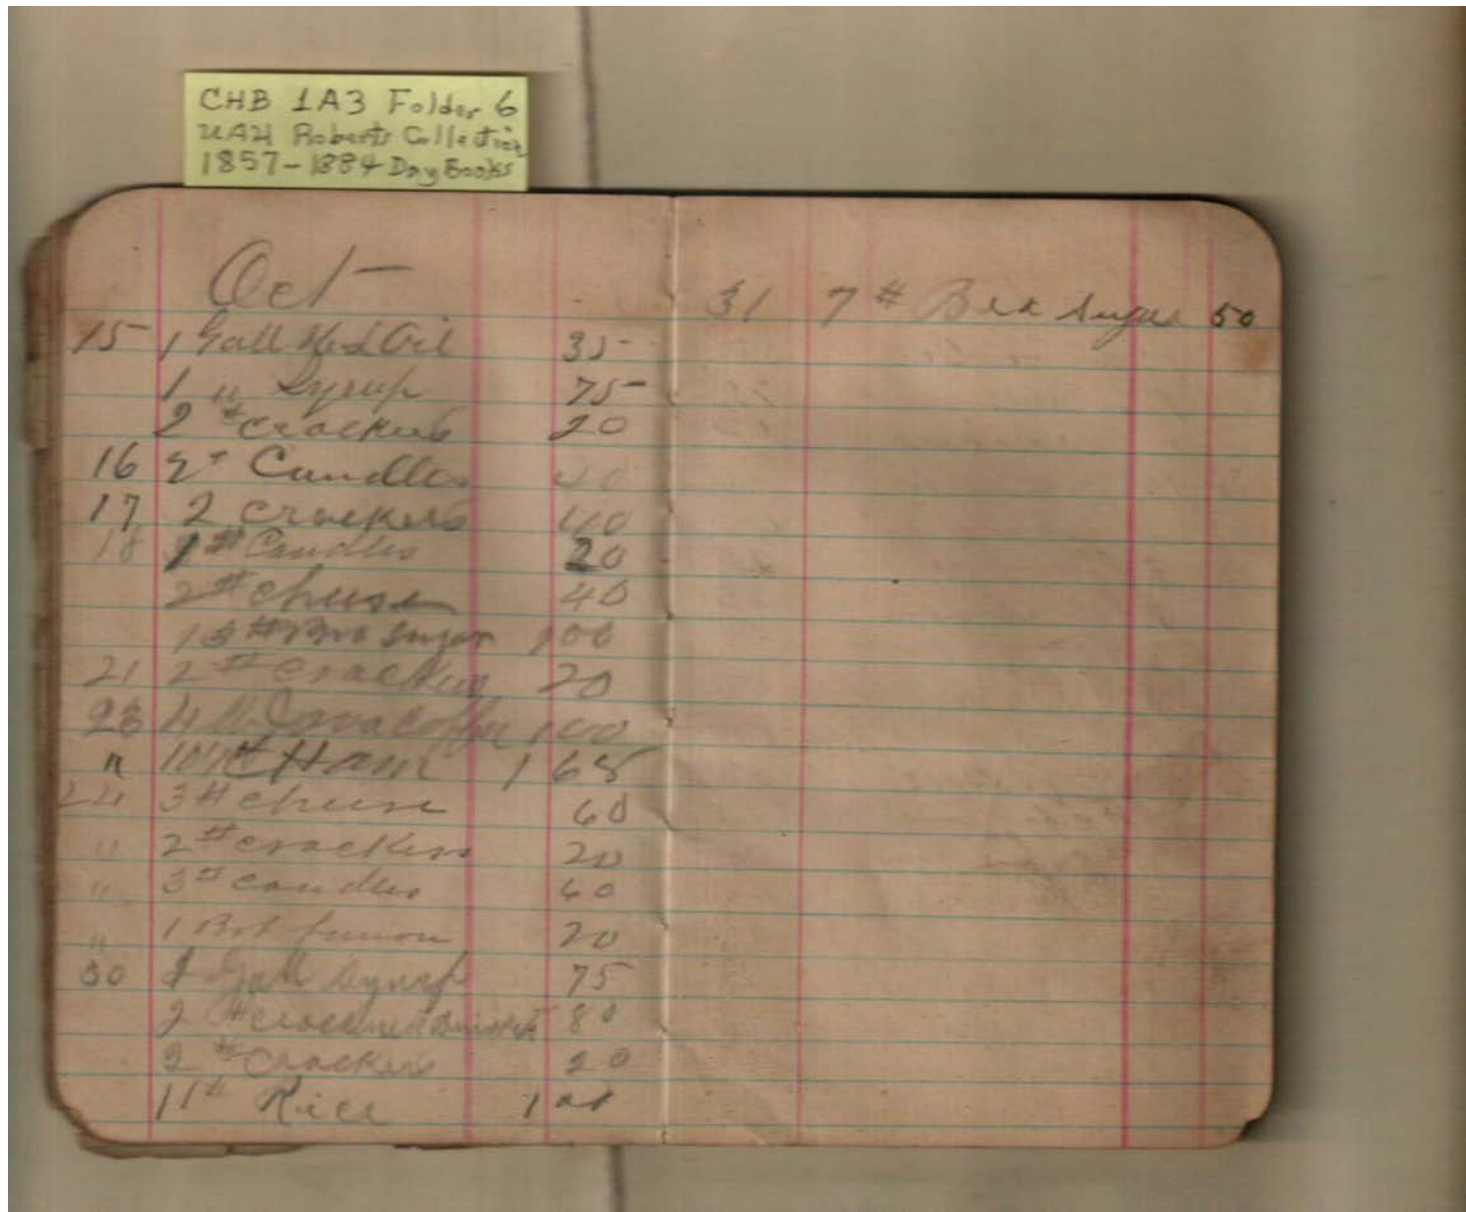 CHB 1A3 Folder 6
UAH Roberts Collection
1857-1884 Day Books
Oct
15 1 Gall Oil 35
1 " Syrup 75
2 # crackers 20
16 2 # Candles 40
17 2 crackers 40
18 1 # Candles 20
2 # cheese 40
13 # Bro Sugar 100
21 2 # crackers 20
4 Java Coffee 100
" # Ham 1 65
24 3 # cheese 60
" 2 # crackers 20
" 3 # candles 60
" 1 Bot 20
30 1 Gall Syrup 75
2 # 80
2 # Crackers 20
11 # Rice 1
31 7 # Sugar 50